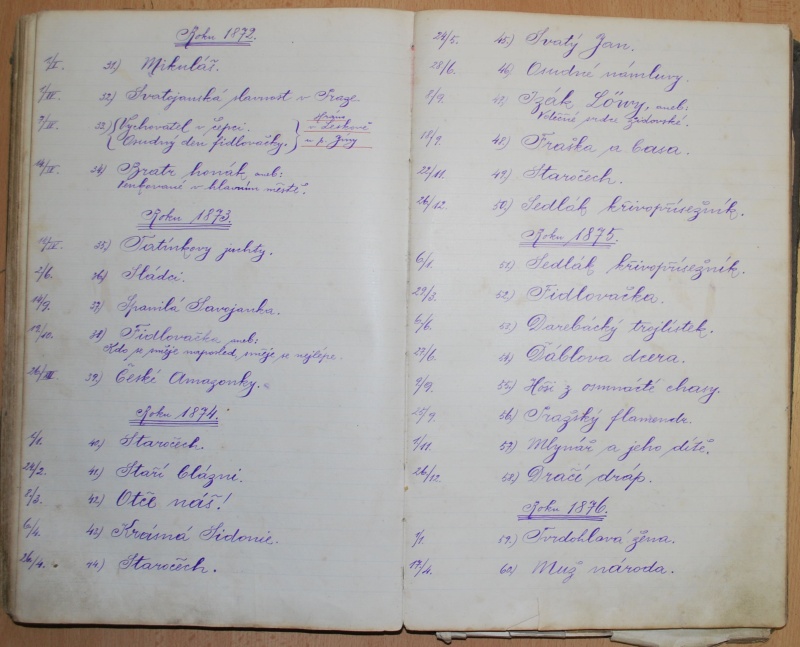 Roku 1872.
31) Mikuláš.
32) Svatojanská slavnost v Praze
33) Vychovatel v čepci. sehráno v Leskově
Osudný den fidlovačky. u p. Zimy
34) Bratr honák aneb:
Venkované v hlavním městě.
Roku 1873.
35) Tatínkovy juchty.
2/6. 36) Sládci.
14/9. 37) Spanilá Savojanka.
19/10. 38) Fidlovačka, aneb:
Kdo se směje naposled, směje se nejlépe.
26/XII. 39) České Amazonky.
Roku 1874.
1/1. 40) Staročech.
24/2. 41) Staří blázni.
8/3. 42) Otče náš!
6/4. 43) Krásná Sidonie.
26/4. 44) Staročech.
24/5. 45) Svatý Jan.
28/6. 46) Osudné námluvy.
8/9. 47) Izák Löwy, aneb:
srdce židovské.
18/9. 48) Fraška a basa.
22/11. 49) Staročech.
26/12. 50) Sedlák křivopřísežník.
Roku 1875.
6/1. 51) Sedlák křivopřísežník.
29/3. 52) Fidlovačka.
6/6. 53) Darebácký trojlístek.
27/6. 54) Ďáblova dcera.
9/9. 55) Hoši z osmnácté chasy.
25/9. 56) Pražský flamendr.
1/11. 57) Mlynář a jeho dítě.
26/12. 58) Dračí dráp.
Roku 1876.
1/1. 59) Tvrdohlavá žena.
17/4. 60) Muž národa.